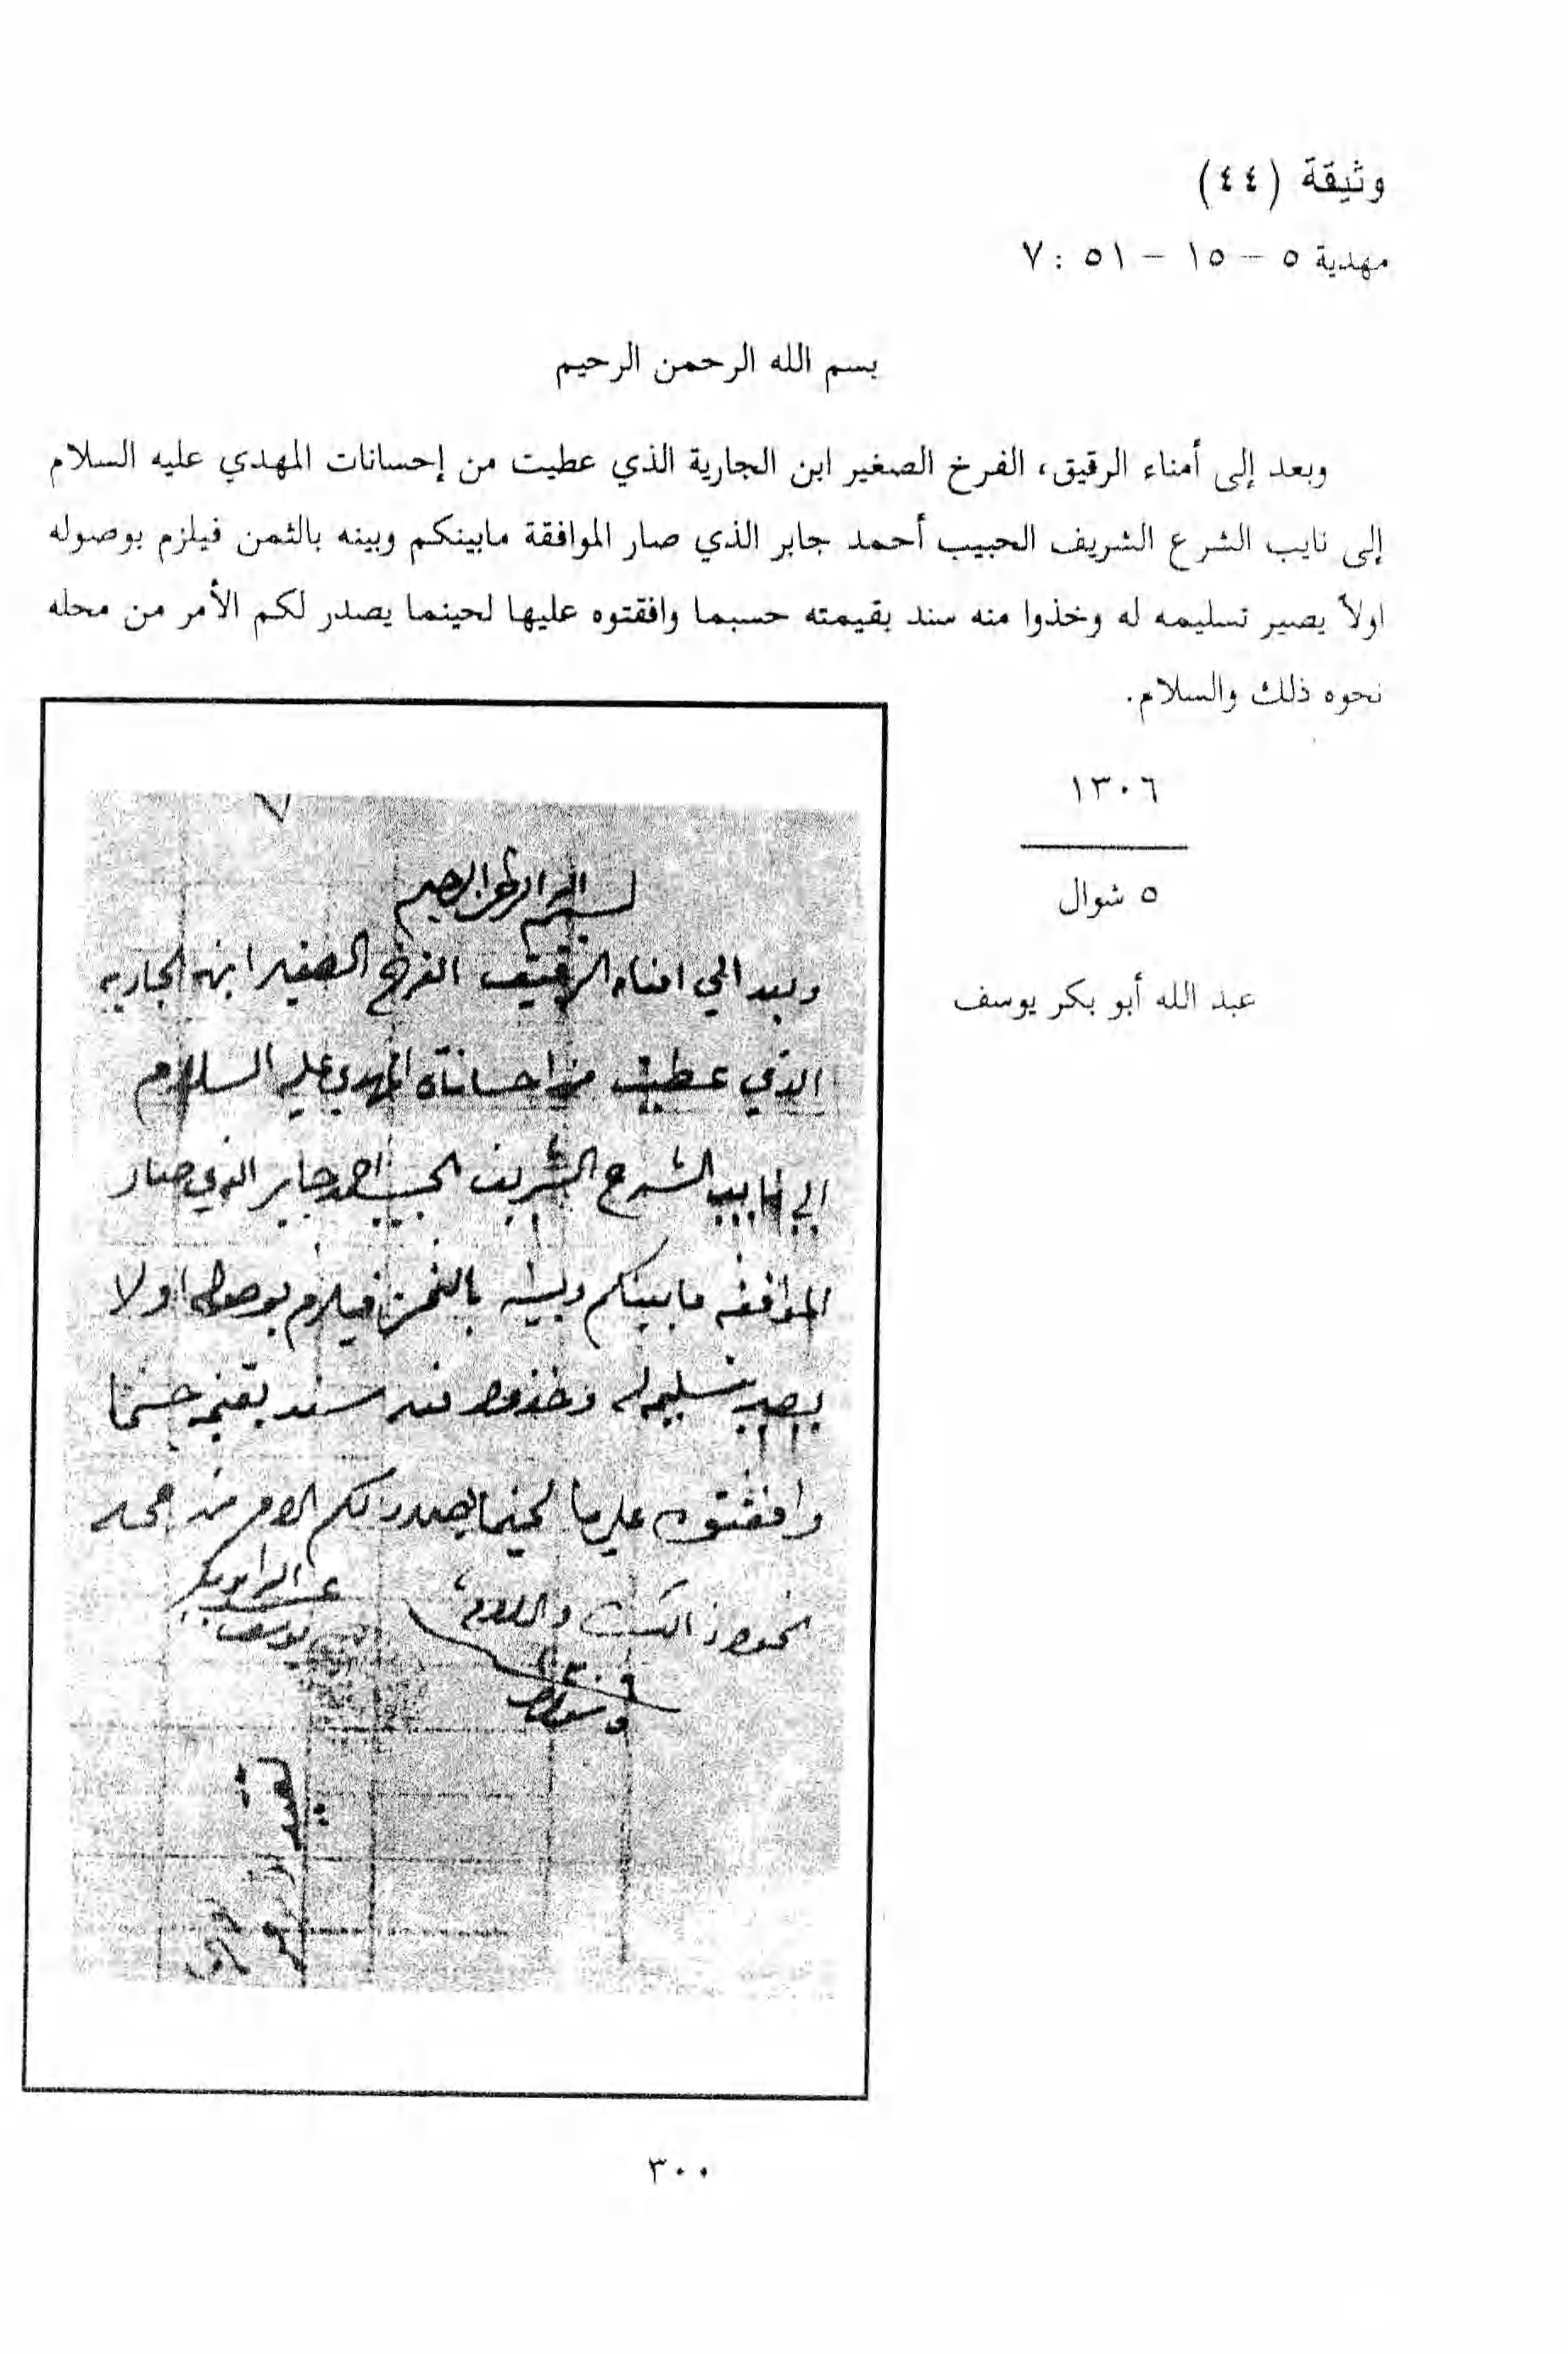 وثيقة (٤٤)
مهدية ٥ – ١٥ – ٥١ : ٧
بسم الله الرحمن الرحيم
وبعد إلى أمناء الرقيق، الفرخ الصغير ابن الجارية الذي عطيت من إحسانات المهدي عليه السلام
إلى نايب الشرع الشريف الحبيب أحمد جابر الذي صار الموافقة مابينكم وبينه بالثمن فيلزم بوصوله
اولاً يصير تسليمه له وخذوا منه سند بقيمته حسبما وافقتوه عليها لحينما يصدر لكم الأمر من محله
نحوه ذلك والسلام.
١٣٠٦
٥ شوال
عبد الله أبو بكر يوسف
٧
بسم الله الرحمن الرحيم
وبعد الي امناء الرقيق الفرخ الصغير ابن الجاريه
الذي عطيت من احسانات المهدي عليه السلام
الي نايب الشرع الشريف الحبيب احمد جابر الذي صار
الموافقه مابينكم وبينه بالثمن فيلزم بوصوله اولا
يصير تسليمه له وخذوا منه سند بقيمته حسبما
وافقتوه عليها لحينما يصدر لكم الامر من محله
نحوه ذالك والسلام
عبد الله ابو بكر
يوسف
٥ شوال
٣٠٠